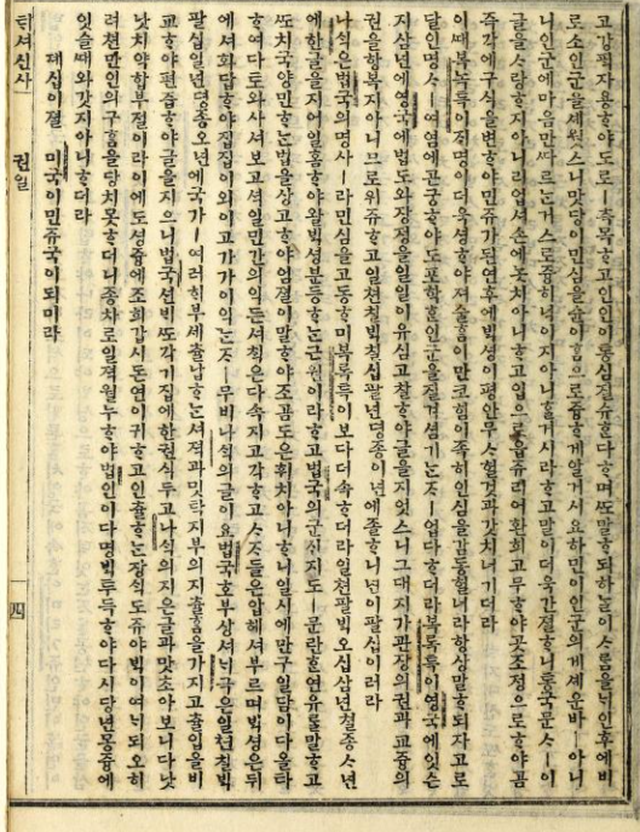 고강퍅자용ᄒᆞ야도로ㅣ측목ᄒᆞ고인인이통심절슈ᄒᆞᆫ다ᄒᆞ며ᄯᅩ말ᄒᆞ되하ᄂᆞᆯ이ᄉᆞᄅᆞᆷ을ᄂᆡ인후에비
로소인군을셰웟스니맛당이민심을슌이ᄒᆞᆷ으로즁ᄒᆞ게알거시요하민이인군의게계운바ㅣ아니
니인군에마음만ᄯᅡ르ᄂᆞᆫ거스로즁히녁이지아니ᄒᆞᆯ거시라ᄒᆞ고말이더욱간졀ᄒᆞ니통국문ᄉᆞㅣ이
글을ᄉᆞ랑ᄒᆞ지아니리업셔손에놋치아니ᄒᆞ고입으로읍쥬리어환희고무ᄒᆞ야곳조정으로ᄒᆞ야곰
즉각에구식을변ᄒᆞ야민쥬가된연후에ᄇᆡᆨ셩이평안무ᄉᆞᄒᆞᆯ것과갓치녀기더라
이ᄯᅢ복녹특이지명이더욱셩ᄒᆞ야져슐ᄒᆞᆷ이만코힘이족히인심을감동ᄒᆞᆯ너라항상말ᄒᆞ되자고로
달인명ᄉᆞㅣ여염에곤궁ᄒᆞ야도포학ᄒᆞᆫ인군을질겨셤기ᄂᆞᆫᄌᆞㅣ업다ᄒᆞ더라복록특이영국에잇슨
지삼년에영국에법도와장졍을일일이유심고찰ᄒᆞ야글을지엇스니그대지가관장의권과교즁의
권을항복지아니므로위쥬ᄒᆞ고일쳔칠ᄇᆡᆨ칠십팔년뎡종이년에졸ᄒᆞ니년이팔십이러라
나식은법국의명사ㅣ라민심을고동ᄒᆞᆷ미복록특이보다더속ᄒᆞ더라일쳔팔ᄇᆡᆨ오십삼년철종ᄉᆞ년
에한글을지어일홈ᄒᆞ야왈ᄇᆡᆨ셩분등ᄒᆞᄂᆞᆫ근원이라ᄒᆞ고법국의군신지도ㅣ문란ᄒᆞᆫ연유를말ᄒᆞ고
ᄯᅩ치국양민ᄒᆞᄂᆞᆫ법을상고ᄒᆞ야엄졀이말ᄒᆞ야조곰도은휘치아니ᄒᆞ니일시에만구일담이다울타
ᄒᆞ여다토와사셔보고셔일민간의익든셔ᄎᆡᆨ은다속지고각ᄒᆞ고ᄉᆞᄌᆞ들은압헤셔부르며ᄇᆡᆨ셩은뒤
에셔화답ᄒᆞ야집집이외이고가가이익ᄂᆞᆫᄌᆞㅣ무비나식의글이요법국호부상셔ᄂᆡ극은일쳔칠ᄇᆡᆨ
팔십일년뎡종오년에국가ㅣ여러ᄒᆡ부셰츌납ᄒᆞᄂᆞᆫ셔젹과밋탁지부의지츌ᄒᆞᆷ을가지고츌입을비
교ᄒᆞ야편즙ᄒᆞ야글을지으니법국션ᄇᆡᄯᅩ각기집에한권식두고나식의지은글과맛초아보니다낫
낫치약합부졀이라이에도셩즁에조희갑시돈연이귀ᄒᆞ고인츌ᄒᆞᄂᆞᆫ장식도쥬야ᄇᆡᆨ이여ᄂᆡ되오히
려쳔만인의구ᄒᆞᆷ을당치못ᄒᆞ더니종차로일젹월누ᄒᆞ야법인이다명ᄇᆡᆨ투득ᄒᆞ야다시당년몽즁에
잇슬ᄯᅢ와갓지아니ᄒᆞ더라
제십이졀 미국이민쥬국이되미라
태셔신사 권일 四